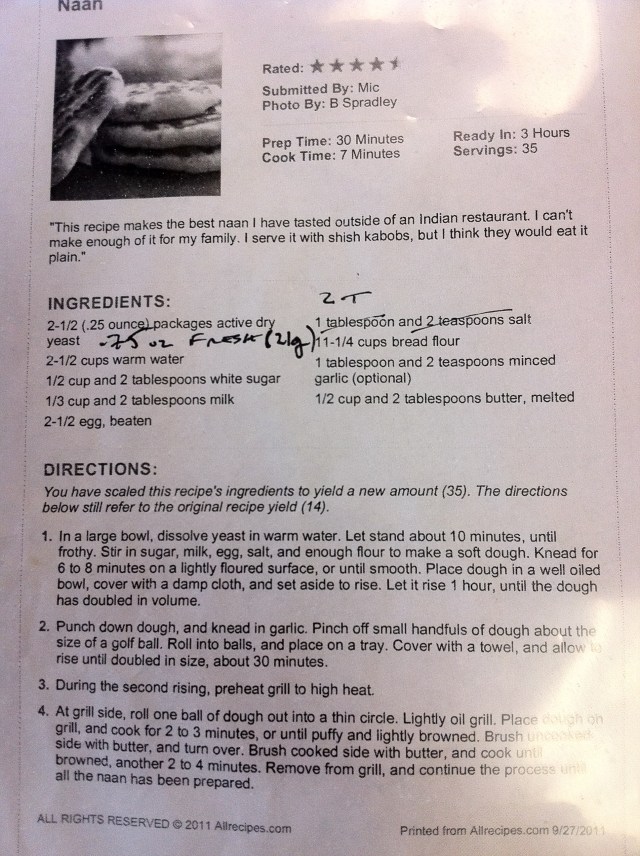 Naan
Rated:
Submitted By: Mic
Photo By: B Spradley
Prep Time: 30 Minutes
Cook Time: 7 Minutes
Ready In: 3 Hours
Servings: 35
"This recipe makes the best naan I have tasted outside of an Indian restaurant. I can't
make enough of it for my family. I serve it with shish kabobs, but I think they would eat it
plain."
INGREDIENTS:
2-1/2 (.25 ounce) packages active dry
yeast .75 oz FRESH (21g)
2-1/2 cups warm water
1/2 cup and 2 tablespoons white sugar
1/3 cup and 2 tablespoons milk
2-1/2 egg, beaten
2 T
1 tablespoon and 2 teaspoons salt
11-1/4 cups bread flour
1 tablespoon and 2 teaspoons minced
garlic (optional)
1/2 cup and 2 tablespoons butter, melted
DIRECTIONS:
You have scaled this recipe's ingredients to yield a new amount (35). The directions
below still refer to the original recipe yield (14).
1. In a large bowl, dissolve yeast in warm water. Let stand about 10 minutes, until
frothy. Stir in sugar, milk, egg, salt, and enough flour to make a soft dough. Knead for
6 to 8 minutes on a lightly floured surface, or until smooth. Place dough in a well oiled
bowl, cover with a damp cloth, and set aside to rise. Let it rise 1 hour, until the dough
has doubled in volume.
2. Punch down dough, and knead in garlic. Pinch off small handfuls of dough about the
size of a golf ball. Roll into balls, and place on a tray. Cover with a towel, and allow to
rise until doubled in size, about 30 minutes.
3. During the second rising, preheat grill to high heat.
4. At grill side, roll one ball of dough out into a thin circle. Lightly oil grill. Place dough on
grill, and cook for 2 to 3 minutes, or until puffy and lightly browned. Brush uncooked
side with butter, and turn over. Brush cooked side with butter, and cook until
browned, another 2 to 4 minutes. Remove from grill, and continue the process until
all the naan has been prepared.
ALL RIGHTS RESERVED © 2011 Allrecipes.com
Printed from Allrecipes.com 9/27/2011